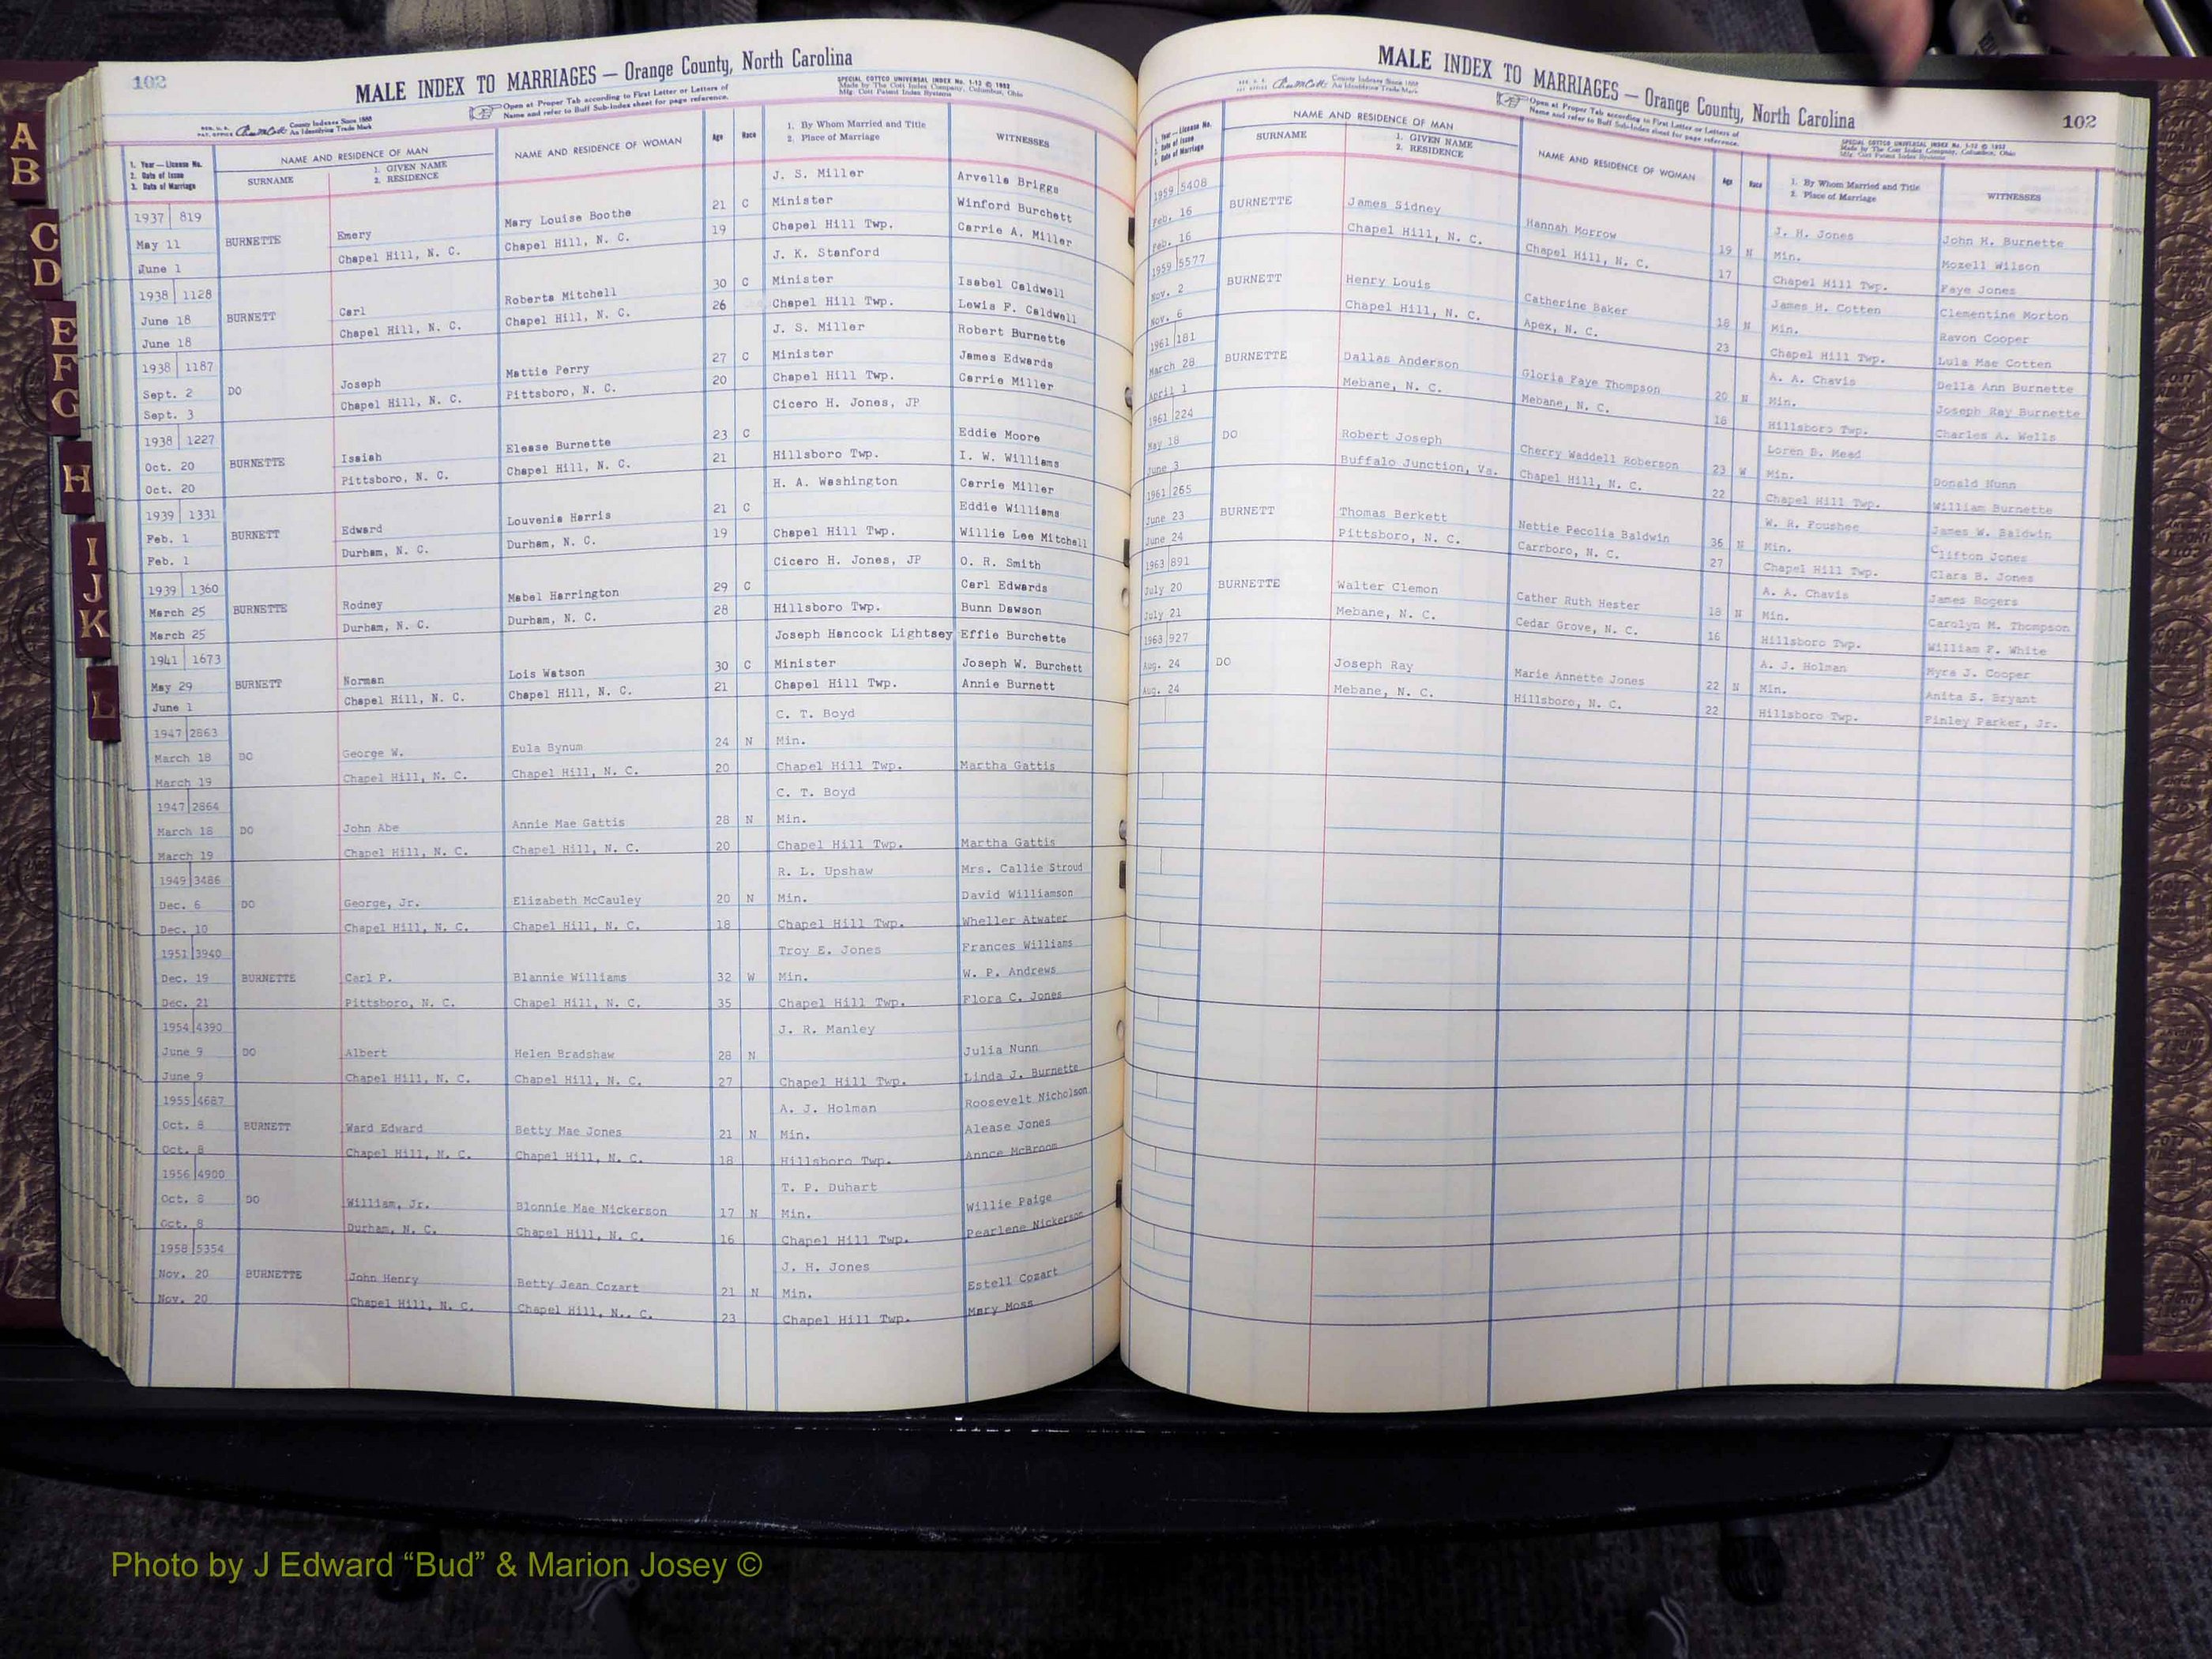 A
B
C
D
E
F
G
H
I
J
K
L
102
MALE INDEX TO MARRIAGES — Orange County, North Carolina
Open at Proper Tab according to First Letter or Letters of
Name and refer to Buff Sub-Index sheet for page reference.
SPECIAL COTTCO UNIVERSAL INDEX No. 1-12 © 1952
Made by The Cott Index Company, Columbus, Ohio
Mfg. Cott Patent Index Systems
1. Year — License No.
2. Date of Issue
3. Date of Marriage
NAME AND RESIDENCE OF MAN
SURNAME
1. GIVEN NAME
2. RESIDENCE
NAME AND RESIDENCE OF WOMAN
Age
Race
1. By Whom Married and Title
2. Place of Marriage
WITNESSES
J. S. Miller Arvella Briggs
1937 819 Mary Louise Boothe 21 C Minister Winford Burchett
May 11 BURNETTE Emery Chapel Hill, N. C. 19 Chapel Hill Twp. Carrie A. Miller
June 1 Chapel Hill, N. C.
J. K. Stanford
1938 1128 Roberta Mitchell 30 C Minister Isabel Caldwell
June 18 BURNETT Carl Chapel Hill, N. C. 26 Chapel Hill Twp. Lewis F. Caldwell
June 18 Chapel Hill, N. C.
J. S. Miller Robert Burnette
1938 1187 Mattie Perry 27 C Minister James Edwards
Sept. 2 DO Joseph Pittsboro, N. C. 20 Chapel Hill Twp. Carrie Miller
Sept. 3 Chapel Hill, N. C.
Cicero H. Jones, JP
1938 1227 Elease Burnette 23 C Eddie Moore
Oct. 20 BURNETTE Isaiah Chapel Hill, N. C. 21 Hillsboro Twp. I. W. Williams
Oct. 20 Pittsboro, N. C.
H. A. Washington Carrie Miller
1939 1331 Louvenia Harris 21 C Eddie Williams
Feb. 1 BURNETT Edward Durham, N. C. 19 Chapel Hill Twp. Willie Lee Mitchell
Feb. 1 Durham, N. C.
Cicero H. Jones, JP O. R. Smith
1939 1360 Mabel Harrington 29 C Carl Edwards
March 25 BURNETTE Rodney Durham, N. C. 28 Hillsboro Twp. Bunn Dawson
March 25 Durham, N. C.
Joseph Hancock Lightsey Effie Burchette
1941 1673 Lois Watson 30 C Minister Joseph W. Burchett
May 29 BURNETT Norman Chapel Hill, N. C. 21 Chapel Hill Twp. Annie Burnett
June 1 Chapel Hill, N. C.
C. T. Boyd
1947 2863
March 18 DO George W. Eula Bynum 24 N Min.
March 19 Chapel Hill, N. C. Chapel Hill, N. C. 20 Chapel Hill Twp. Martha Gattis
C. T. Boyd
1947 2864
March 18 DO John Abe Annie Mae Gattis 28 N Min.
March 19 Chapel Hill, N. C. Chapel Hill, N. C. 20 Chapel Hill Twp. Martha Gattis
1949 3486 R. L. Upshaw Mrs. Callie Stroud
Dec. 6 DO George, Jr. Elizabeth McCauley 20 N Min. David Williamson
Dec. 10 Chapel Hill, N. C. Chapel Hill, N. C. 18 Chapel Hill Twp. Wheller Atwater
1951 3940 Troy E. Jones Frances Williams
Dec. 19 BURNETTE Carl P. Blannie Williams 32 W Min. W. P. Andrews
Dec. 21 Pittsboro, N. C. Chapel Hill, N. C. 35 Chapel Hill Twp. Flora C. Jones
1954 4390 J. R. Manley
June 9 DO Albert Helen Bradshaw 28 N Julia Nunn
June 9 Chapel Hill, N. C. Chapel Hill, N. C. 27 Chapel Hill Twp. Linda J. Burnette
1955 4687 A. J. Holman Roosevelt Nicholson
Oct. 8 BURNETT Ward Edward Betty Mae Jones 21 N Min. Alease Jones
Oct. 8 Chapel Hill, N. C. Chapel Hill, N. C. 18 Hillsboro Twp. Annce McBroom
1956 4900 T. P. Duhart
Oct. 8 DO William, Jr. Blonnie Mae Nickerson 17 N Min. Willie Paige
Oct. 8 Durham, N. C. Chapel Hill, N. C. 16 Chapel Hill Twp. Pearlene Nickerson
1958 5354 J. H. Jones
Nov. 20 BURNETTE John Henry Betty Jean Cozart 21 N Min. Estell Cozart
Nov. 20 Chapel Hill, N. C. Chapel Hill, N.. C. 23 Chapel Hill Twp. Mary Moss
MALE INDEX TO MARRIAGES — Orange County, North Carolina
102
Open at Proper Tab according to First Letter or Letters of
Name and refer to Buff Sub-Index sheet for page reference.
SPECIAL COTTCO UNIVERSAL INDEX No. 1-12 © 1952
Made by The Cott Index Company, Columbus, Ohio
Mfg. Cott Patent Index Systems
1. Year — License No.
2. Date of Issue
3. Date of Marriage
NAME AND RESIDENCE OF MAN
SURNAME
1. GIVEN NAME
2. RESIDENCE
NAME AND RESIDENCE OF WOMAN
Age
Race
1. By Whom Married and Title
2. Place of Marriage
WITNESSES
1959 5408 J. H. Jones John H. Burnette
Feb. 16 BURNETTE James Sidney Hannah Morrow 19 N Min. Mozell Wilson
Feb. 16 Chapel Hill, N. C. Chapel Hill, N. C. 17 Chapel Hill Twp. Faye Jones
1959 5577 James H. Cotten Clementine Morton
Nov. 2 BURNETT Henry Louis Catherine Baker 18 N Min. Ravon Cooper
Nov. 6 Chapel Hill, N. C. Apex, N. C. 23 Chapel Hill Twp. Lula Mae Cotten
1961 181 A. A. Chavis Della Ann Burnette
March 28 BURNETTE Dallas Anderson Gloria Faye Thompson 20 N Min. Joseph Ray Burnette
April 1 Mebane, N. C. Mebane, N. C. 18 Hillsboro Twp. Charles A. Wells
1961 224 Loren B. Mead
May 18 DO Robert Joseph Cherry Waddell Roberson 23 W Min. Donald Nunn
June 3 Buffalo Junction, Va. Chapel Hill, N. C. 22 Chapel Hill Twp. William Burnette
1961 265 W. R. Foushee James W. Baldwin
June 23 BURNETT Thomas Berkett Nettie Pecolia Baldwin 36 N Min. Clifton Jones
June 24 Pittsboro, N. C. Carrboro, N. C. 27 Chapel Hill Twp. Clara B. Jones
1963 891 A. A. Chavis James Rogers
July 20 BURNETTE Walter Clemon Cather Ruth Hester 18 N Min. Carolyn M. Thompson
July 21 Mebane, N. C. Cedar Grove, N. C. 16 Hillsboro Twp. William F. White
1963 927 A. J. Holman Myra J. Cooper
Aug. 24 DO Joseph Ray Marie Annette Jones 22 N Min. Anita S. Bryant
Aug. 24 Mebane, N. C. Hillsboro, N. C. 22 Hillsboro Twp. Finley Parker, Jr.
Photo by J Edward “Bud” & Marion Josey ©